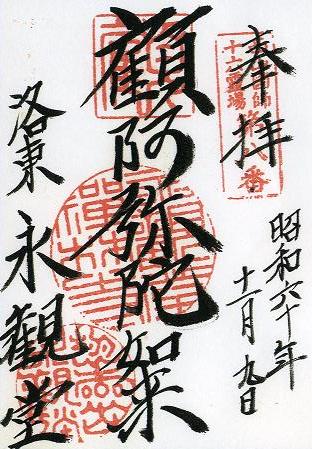 奉拝
十六霊場
昭和六十年
十一月九日
顧阿弥陀如来
洛東 永觀堂